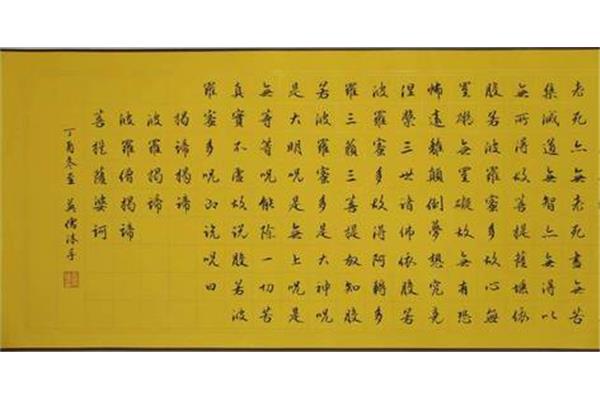 老死亦無老死盡無苦
集滅道無智亦無得以
無所得故菩提薩埵依
般若波羅蜜多故心無
罣礙無罣礙故無有恐
怖遠離顛倒夢想究竟
涅槃三世諸佛依般若
波羅蜜多故得阿耨多
羅三藐三菩提故知般
若波羅蜜多是大神呪
是大明呪是無上呪是
無等等呪能除一切苦
真實不虛故說般若波
羅蜜多呪即說呪曰
揭諦揭諦
波羅揭諦
波羅僧揭諦
菩提薩婆訶
丁酉冬至儒沐手